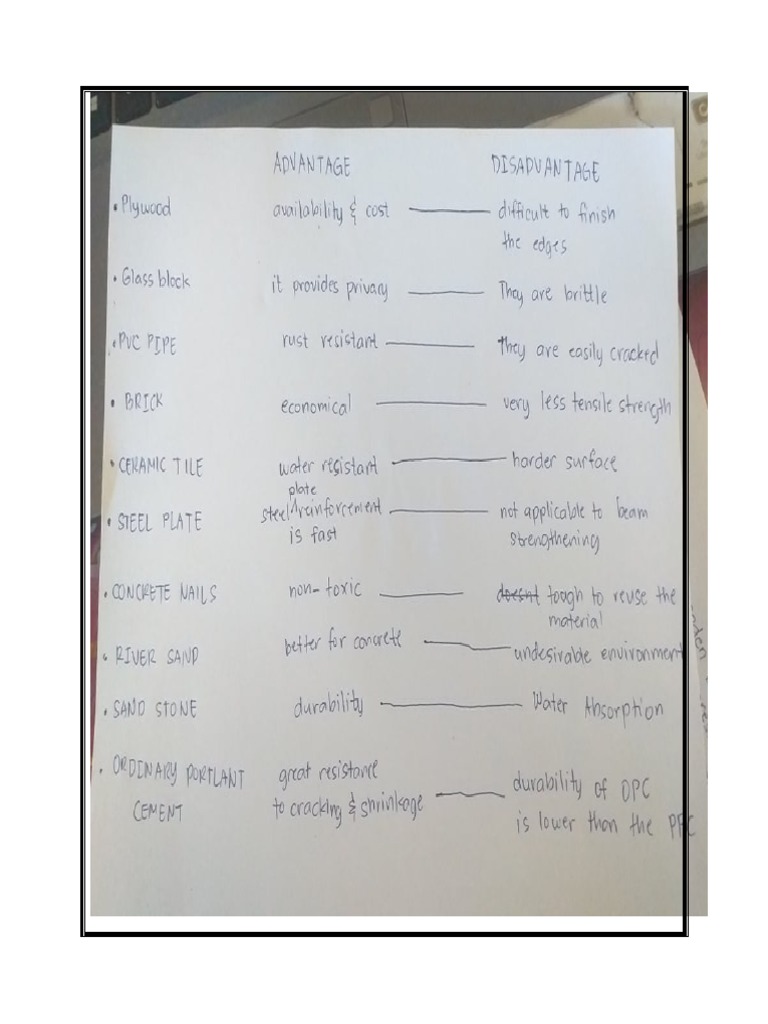 ADVANTAGE DISADVANTAGE
• Plywood availability & cost — difficult to finish
the edges
• Glass block it provides privacy — They are brittle
• PVC PIPE rust resistant — They are easily cracked
• BRICK economical — very less tensile strength
• CERAMIC TILE water resistant — harder surface
plate
• STEEL PLATE steel ^ reinforcement — not applicable to beam
is fast strengthening
• CONCRETE NAILS non-toxic — doesnt tough to reuse the
material
• RIVER SAND better for concrete — undesirable environment
• SAND STONE durability — Water Absorption
• ORDINARY PORTLANT great resistance durability of OPC
CEMENT to cracking & shrinkage — is lower than the PPC